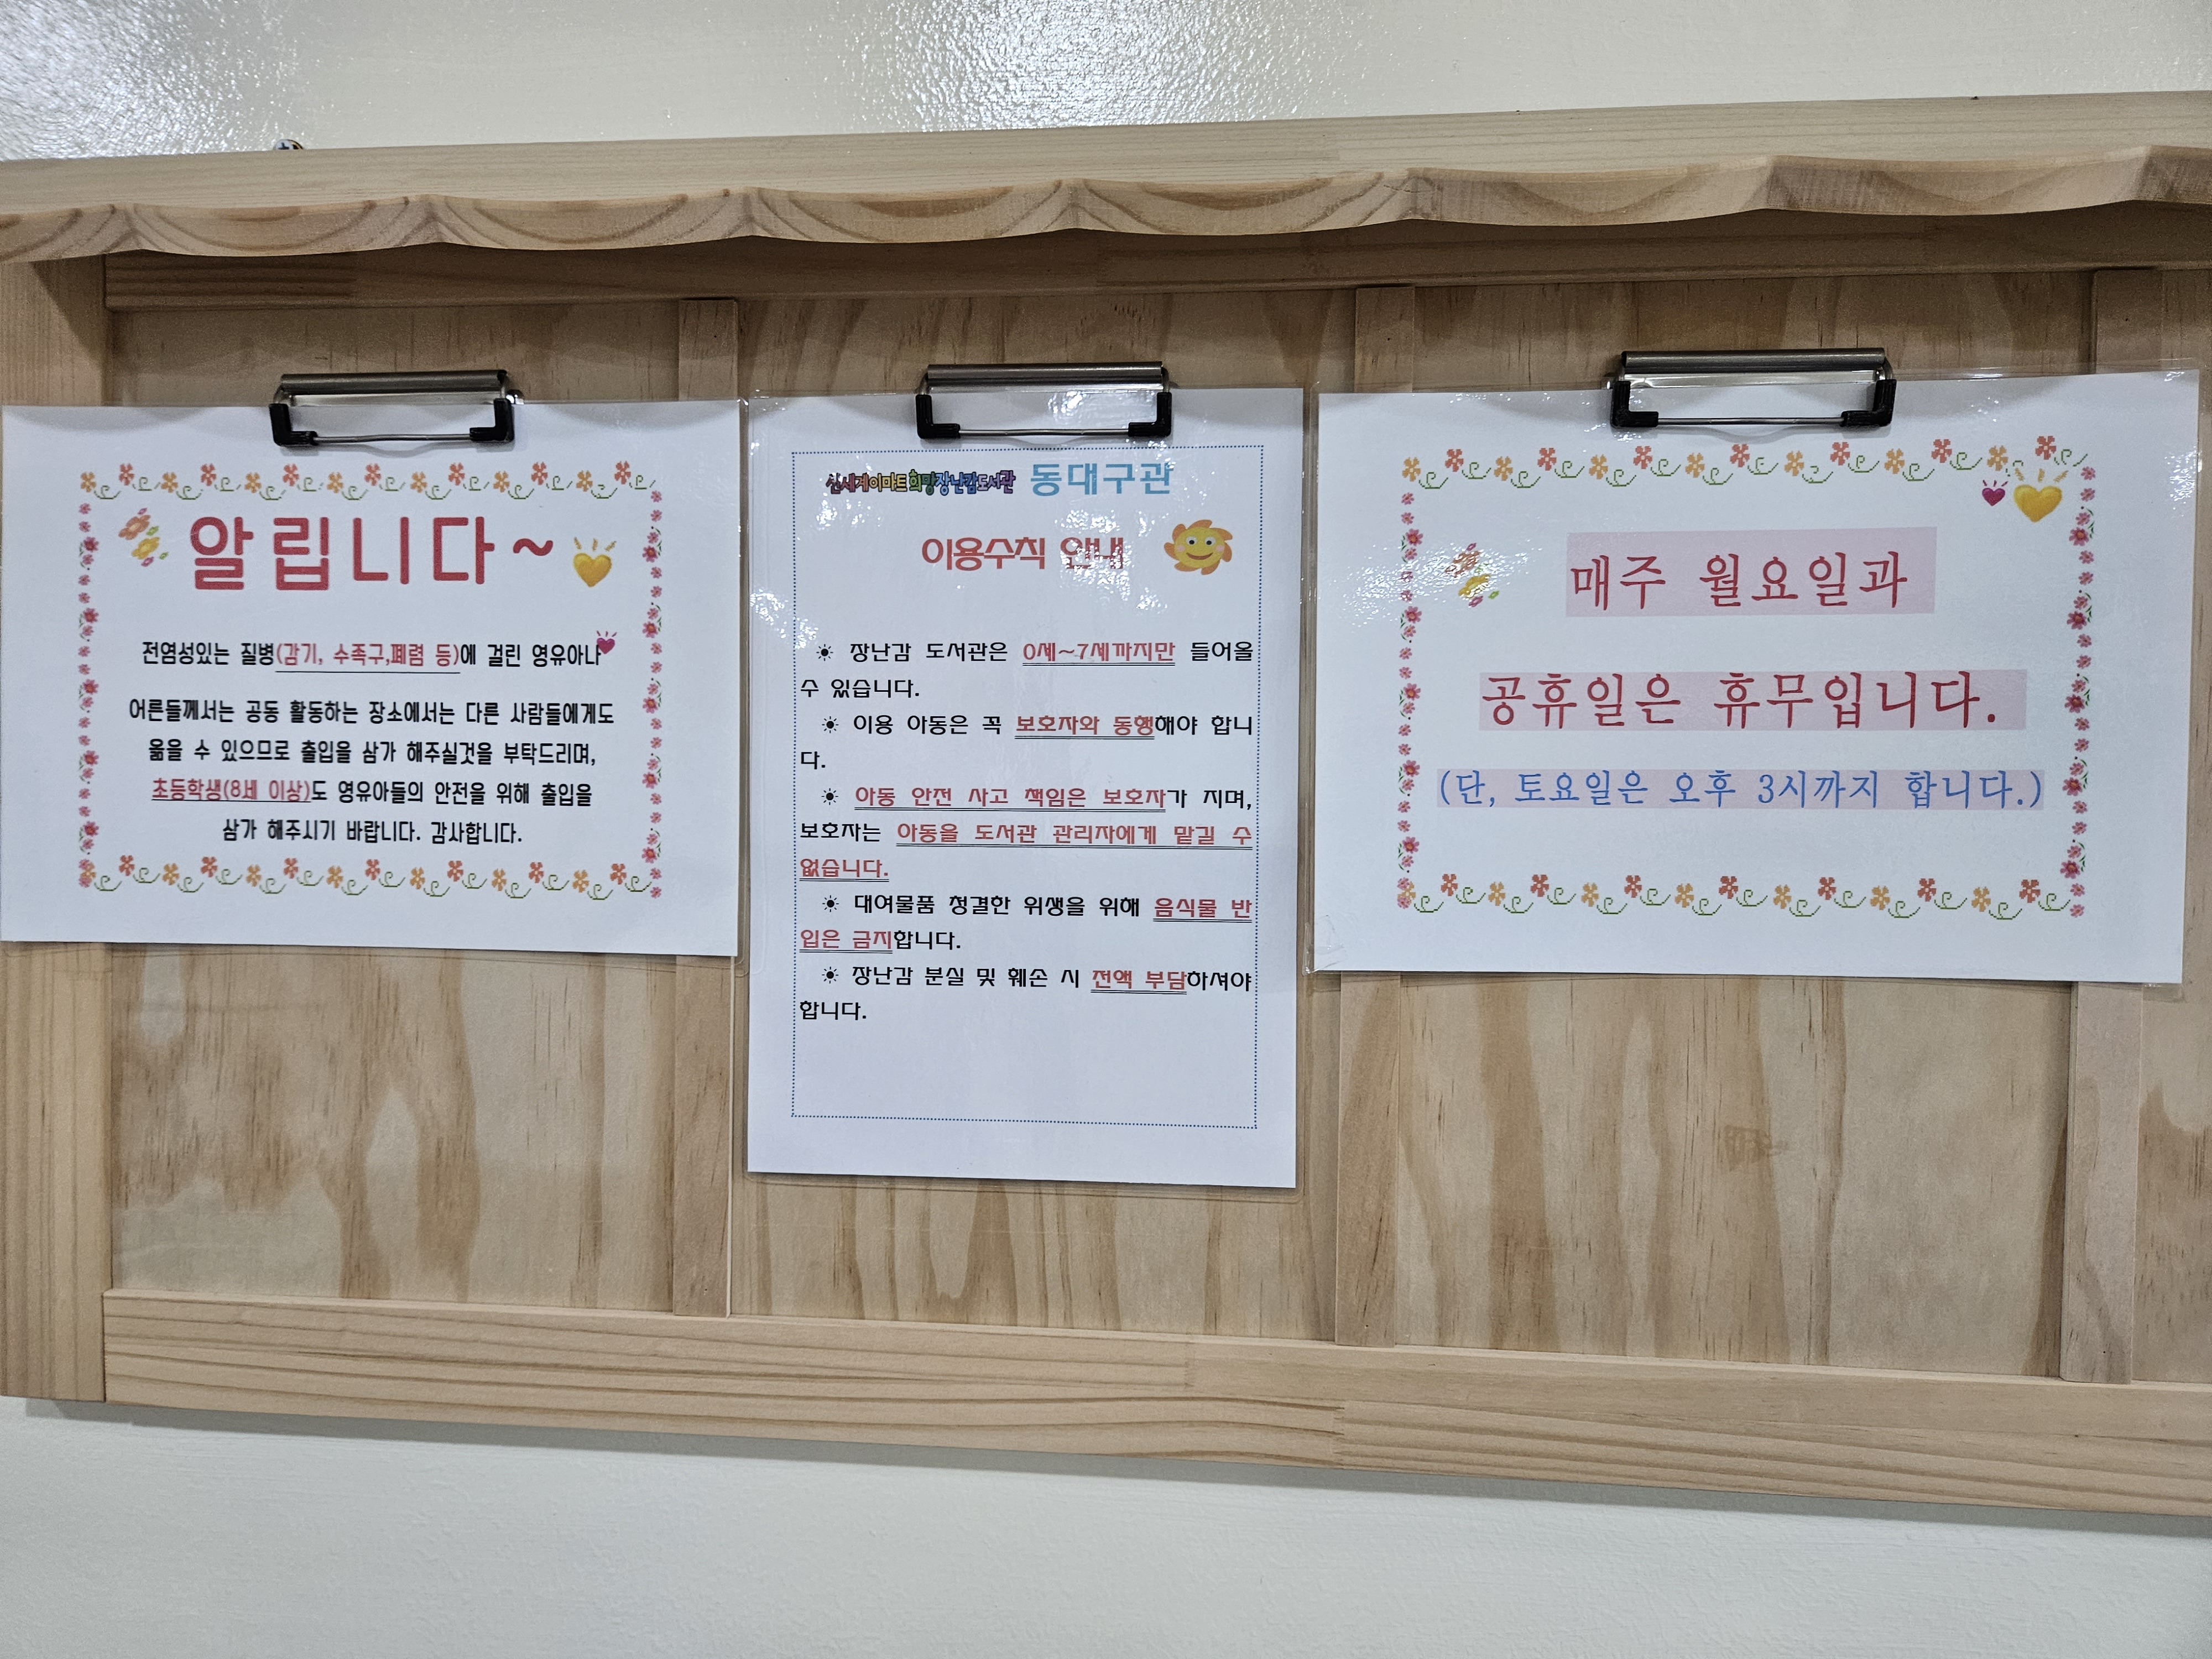 알립니다~
전염성있는 질병(감기, 수족구,폐렴 등)에 걸린 영유아나
어른들께서는 공동 활동하는 장소에서는 다른 사람들에게도
옮을 수 있으므로 출입을 삼가 해주실것을 부탁드리며,
초등학생(8세 이상)도 영유아들의 안전을 위해 출입을
삼가 해주시기 바랍니다. 감사합니다.
신세계이마트희망장난감도서관 동대구관
이용수칙 안내
☀ 장난감 도서관은 0세~7세까지만 들어올
수 있습니다.
☀ 이용 아동은 꼭 보호자와 동행해야 합니
다.
☀ 아동 안전 사고 책임은 보호자가 지며,
보호자는 아동을 도서관 관리자에게 맡길 수
없습니다.
☀ 대여물품 청결한 위생을 위해 음식물 반
입은 금지합니다.
☀ 장난감 분실 및 훼손 시 전액 부담하셔야
합니다.
매주 월요일과
공휴일은 휴무입니다.
(단, 토요일은 오후 3시까지 합니다.)